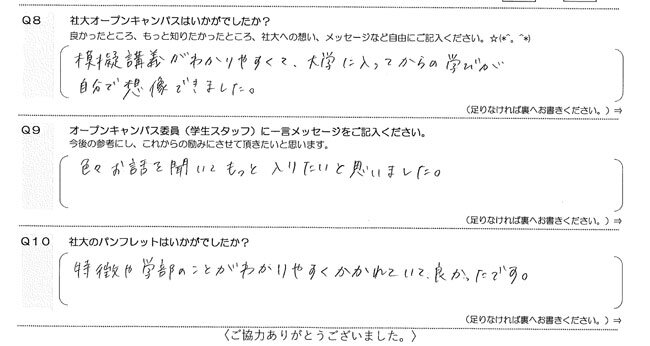 Q8 社大オープンキャンパスはいかがでしたか？
良かったところ、もっと知りたかったところ、社大への想い、メッセージなど自由にご記入ください。☆(*^。^*)
模擬講義がわかりやすくて、大学に入ってからの学びが
自分で想像できました。
(足りなければ裏へお書きください。)⇒
Q9 オープンキャンパス委員（学生スタッフ）に一言メッセージをご記入ください。
今後の参考にし、これからの励みにさせて頂きたいと思います。
色々お話を聞いてもっと入りたいと思いました。
(足りなければ裏へお書きください。)⇒
Q10 社大のパンフレットはいかがでしたか？
特徴や学部のことがわかりやすくかかれていて、良かったです。
(足りなければ裏へお書きください。)⇒
〈ご協力ありがとうございました。〉